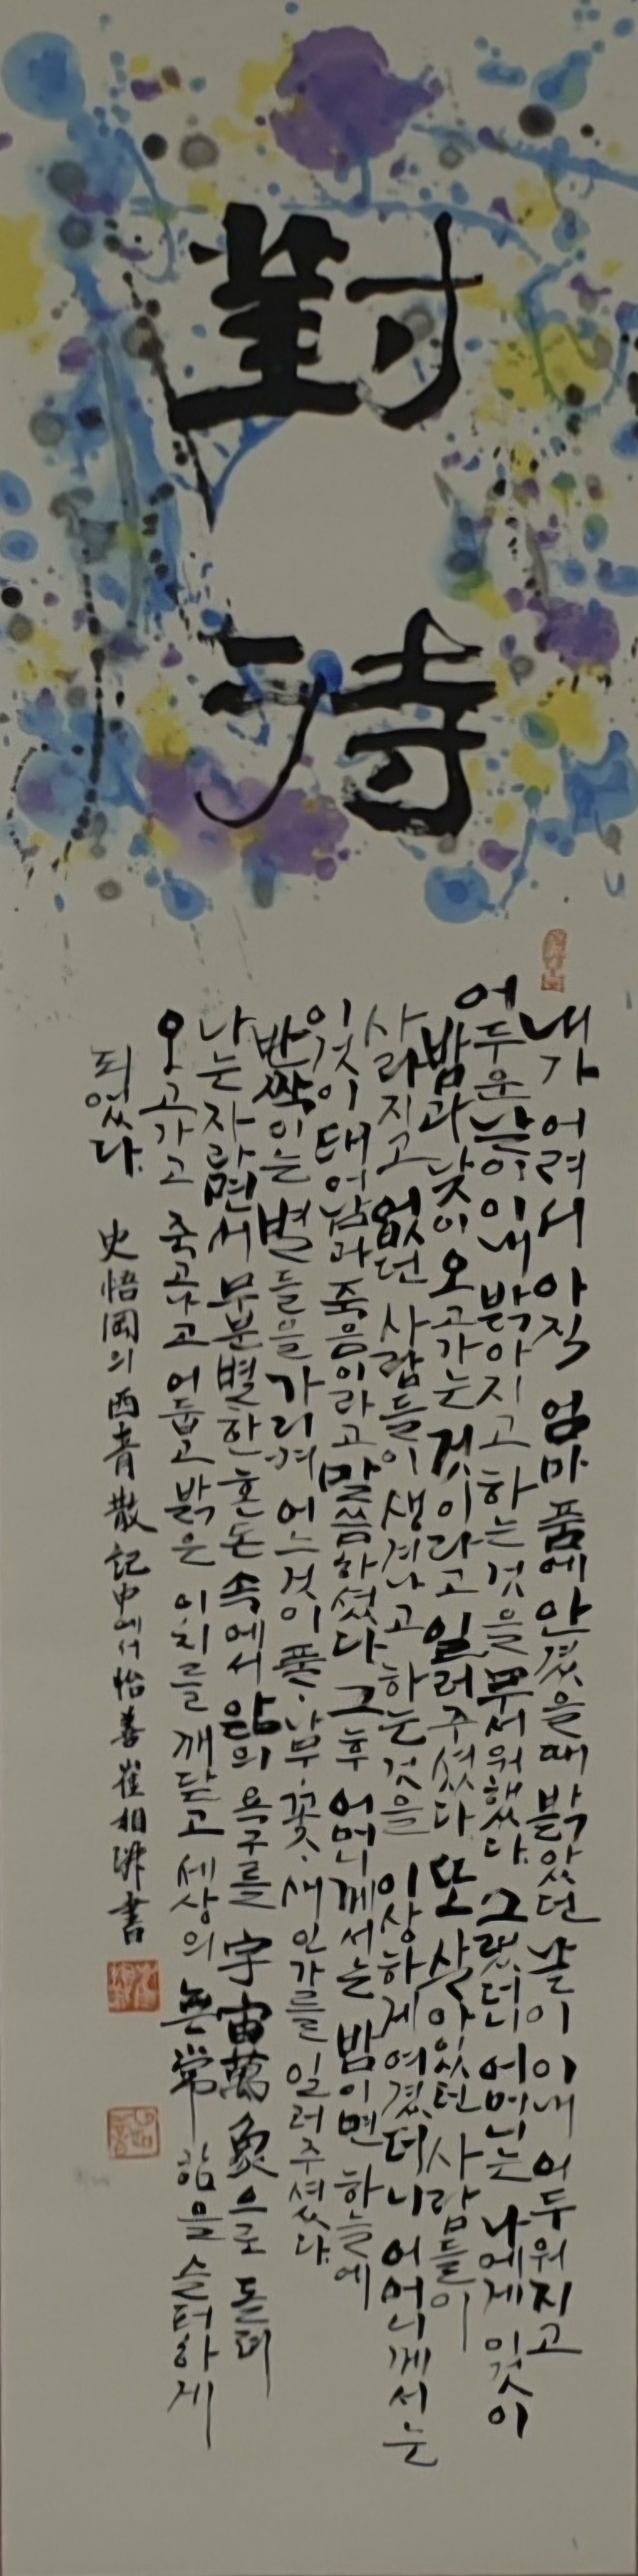 對
待
내가 어려서 아직 엄마 품에 안겼을때 밝았던 날이 이내 어두워지고
어두운 날이 이내 밝아지고 하는 것을 무서워했다. 그랬더니 어머니는 나에게 이것이
밤과 낮이 오고가는 것이라고 일러주셨다 또 살아있던 사람들이
사라지고 없던 사람들이 생겨나고 하는것을 이상하게 여겼더니 어머니께서는
이것이 태어남과 죽음이라고 말씀하셨다 그후 어머니께서는 밤이면 하늘에
반짝이는 별들을 가리켜 어느것이 풀·나무·꽃·새인가를 일러주셨다.
나는 자라면서 무분별한 혼돈 속에서 앎의 욕구를 宇宙萬象으로 돌려
오고가고 죽고나고 어둡고 밝은 이치를 깨닫고 세상의 無常함을 슬퍼하게
되었다. 史悟岡의 西靑散記中에서 怡善 崔相 書